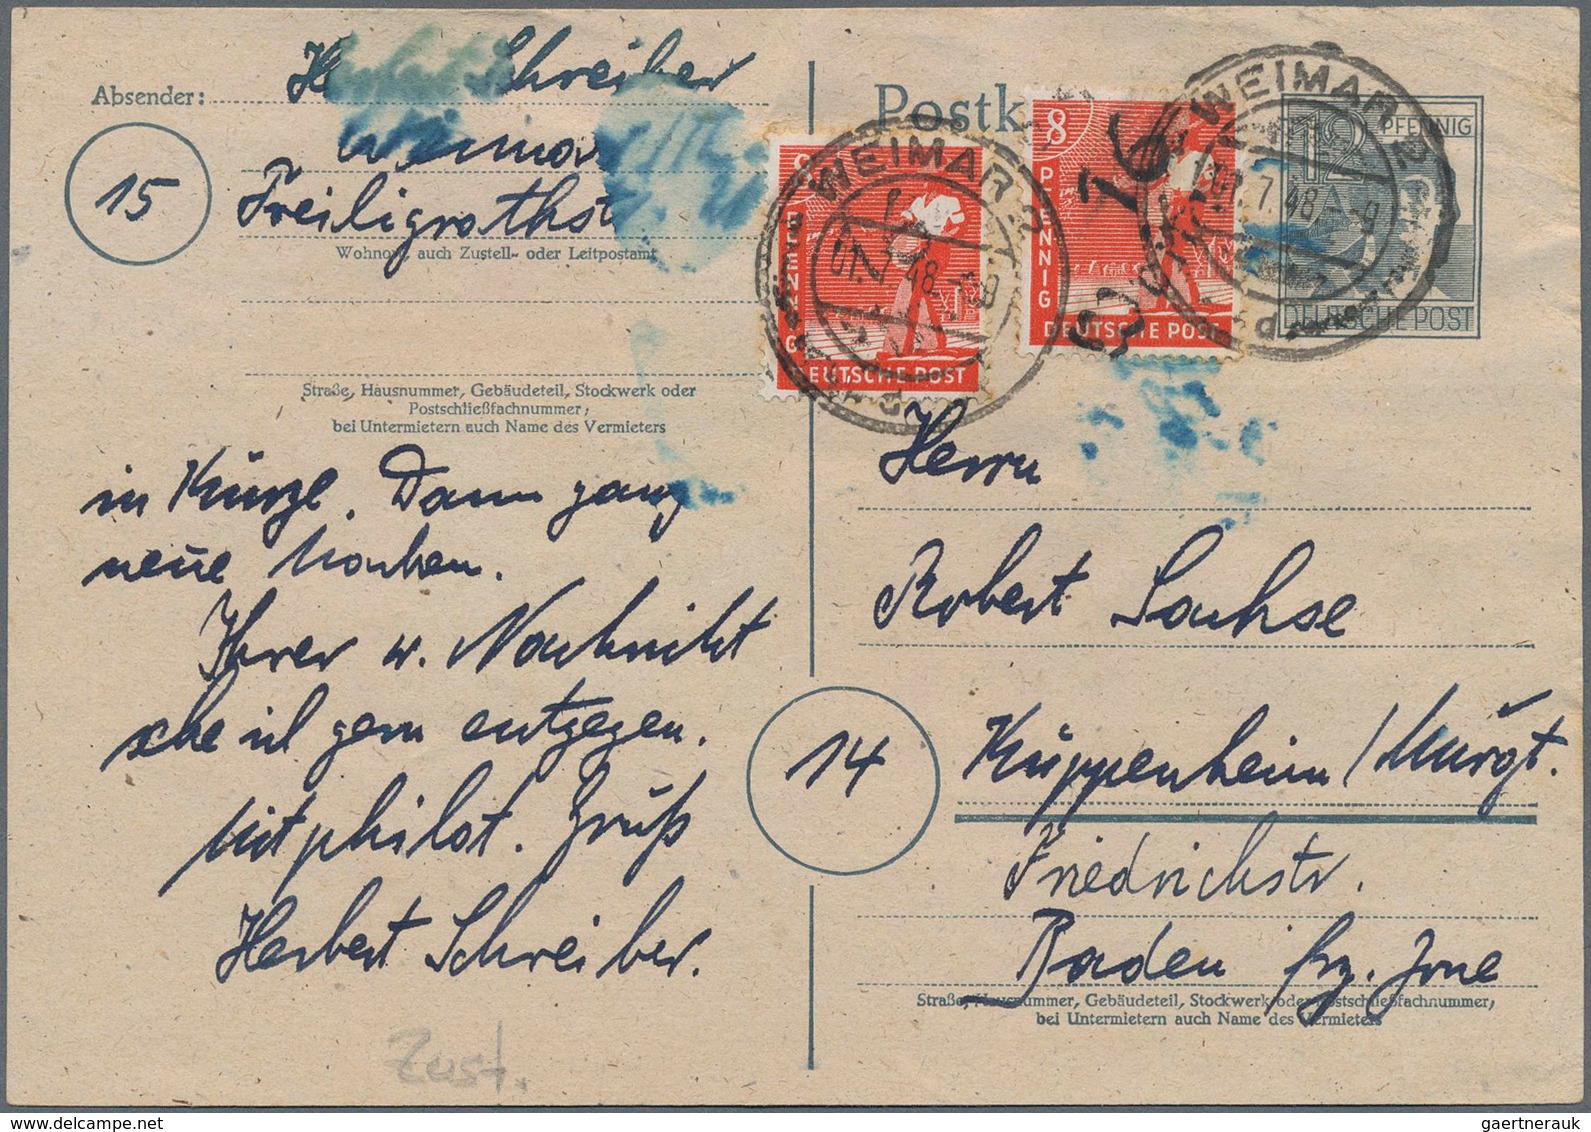 Absender: Herbert Schreiber
Weimar
15
Freiligrathstr
Wohnort, auch Zustell- oder Leitpostamt
Straße, Hausnummer, Gebäudeteil, Stockwerk oder
Postschließfachnummer;
bei Untermietern auch Name des Vermieters
in Kürze. Dann ganz
neue Marken.
Ihrer w. Nachricht
sehe ich gern entgegen.
Mit philat. Gruß
Herbert Schreiber.
Zust.
Postk
WEIMAR 2
01.7.48
8
PFENNIG
DEUTSCHE POST
8
PFENNIG
DEUTSCHE POST
16
Weimar
WEIMAR 2
7.48
d
12
PFENNIG
DEUTSCHE POST
Herrn
Robert Sachse
14
Kuppenheim / Murgt.
Friedrichstr.
Baden frz. Zone
Straße, Hausnummer, Gebäudeteil, Stockwerk oder Postschließfachnummer;
bei Untermietern auch Name des Vermieters
gaertnerauk